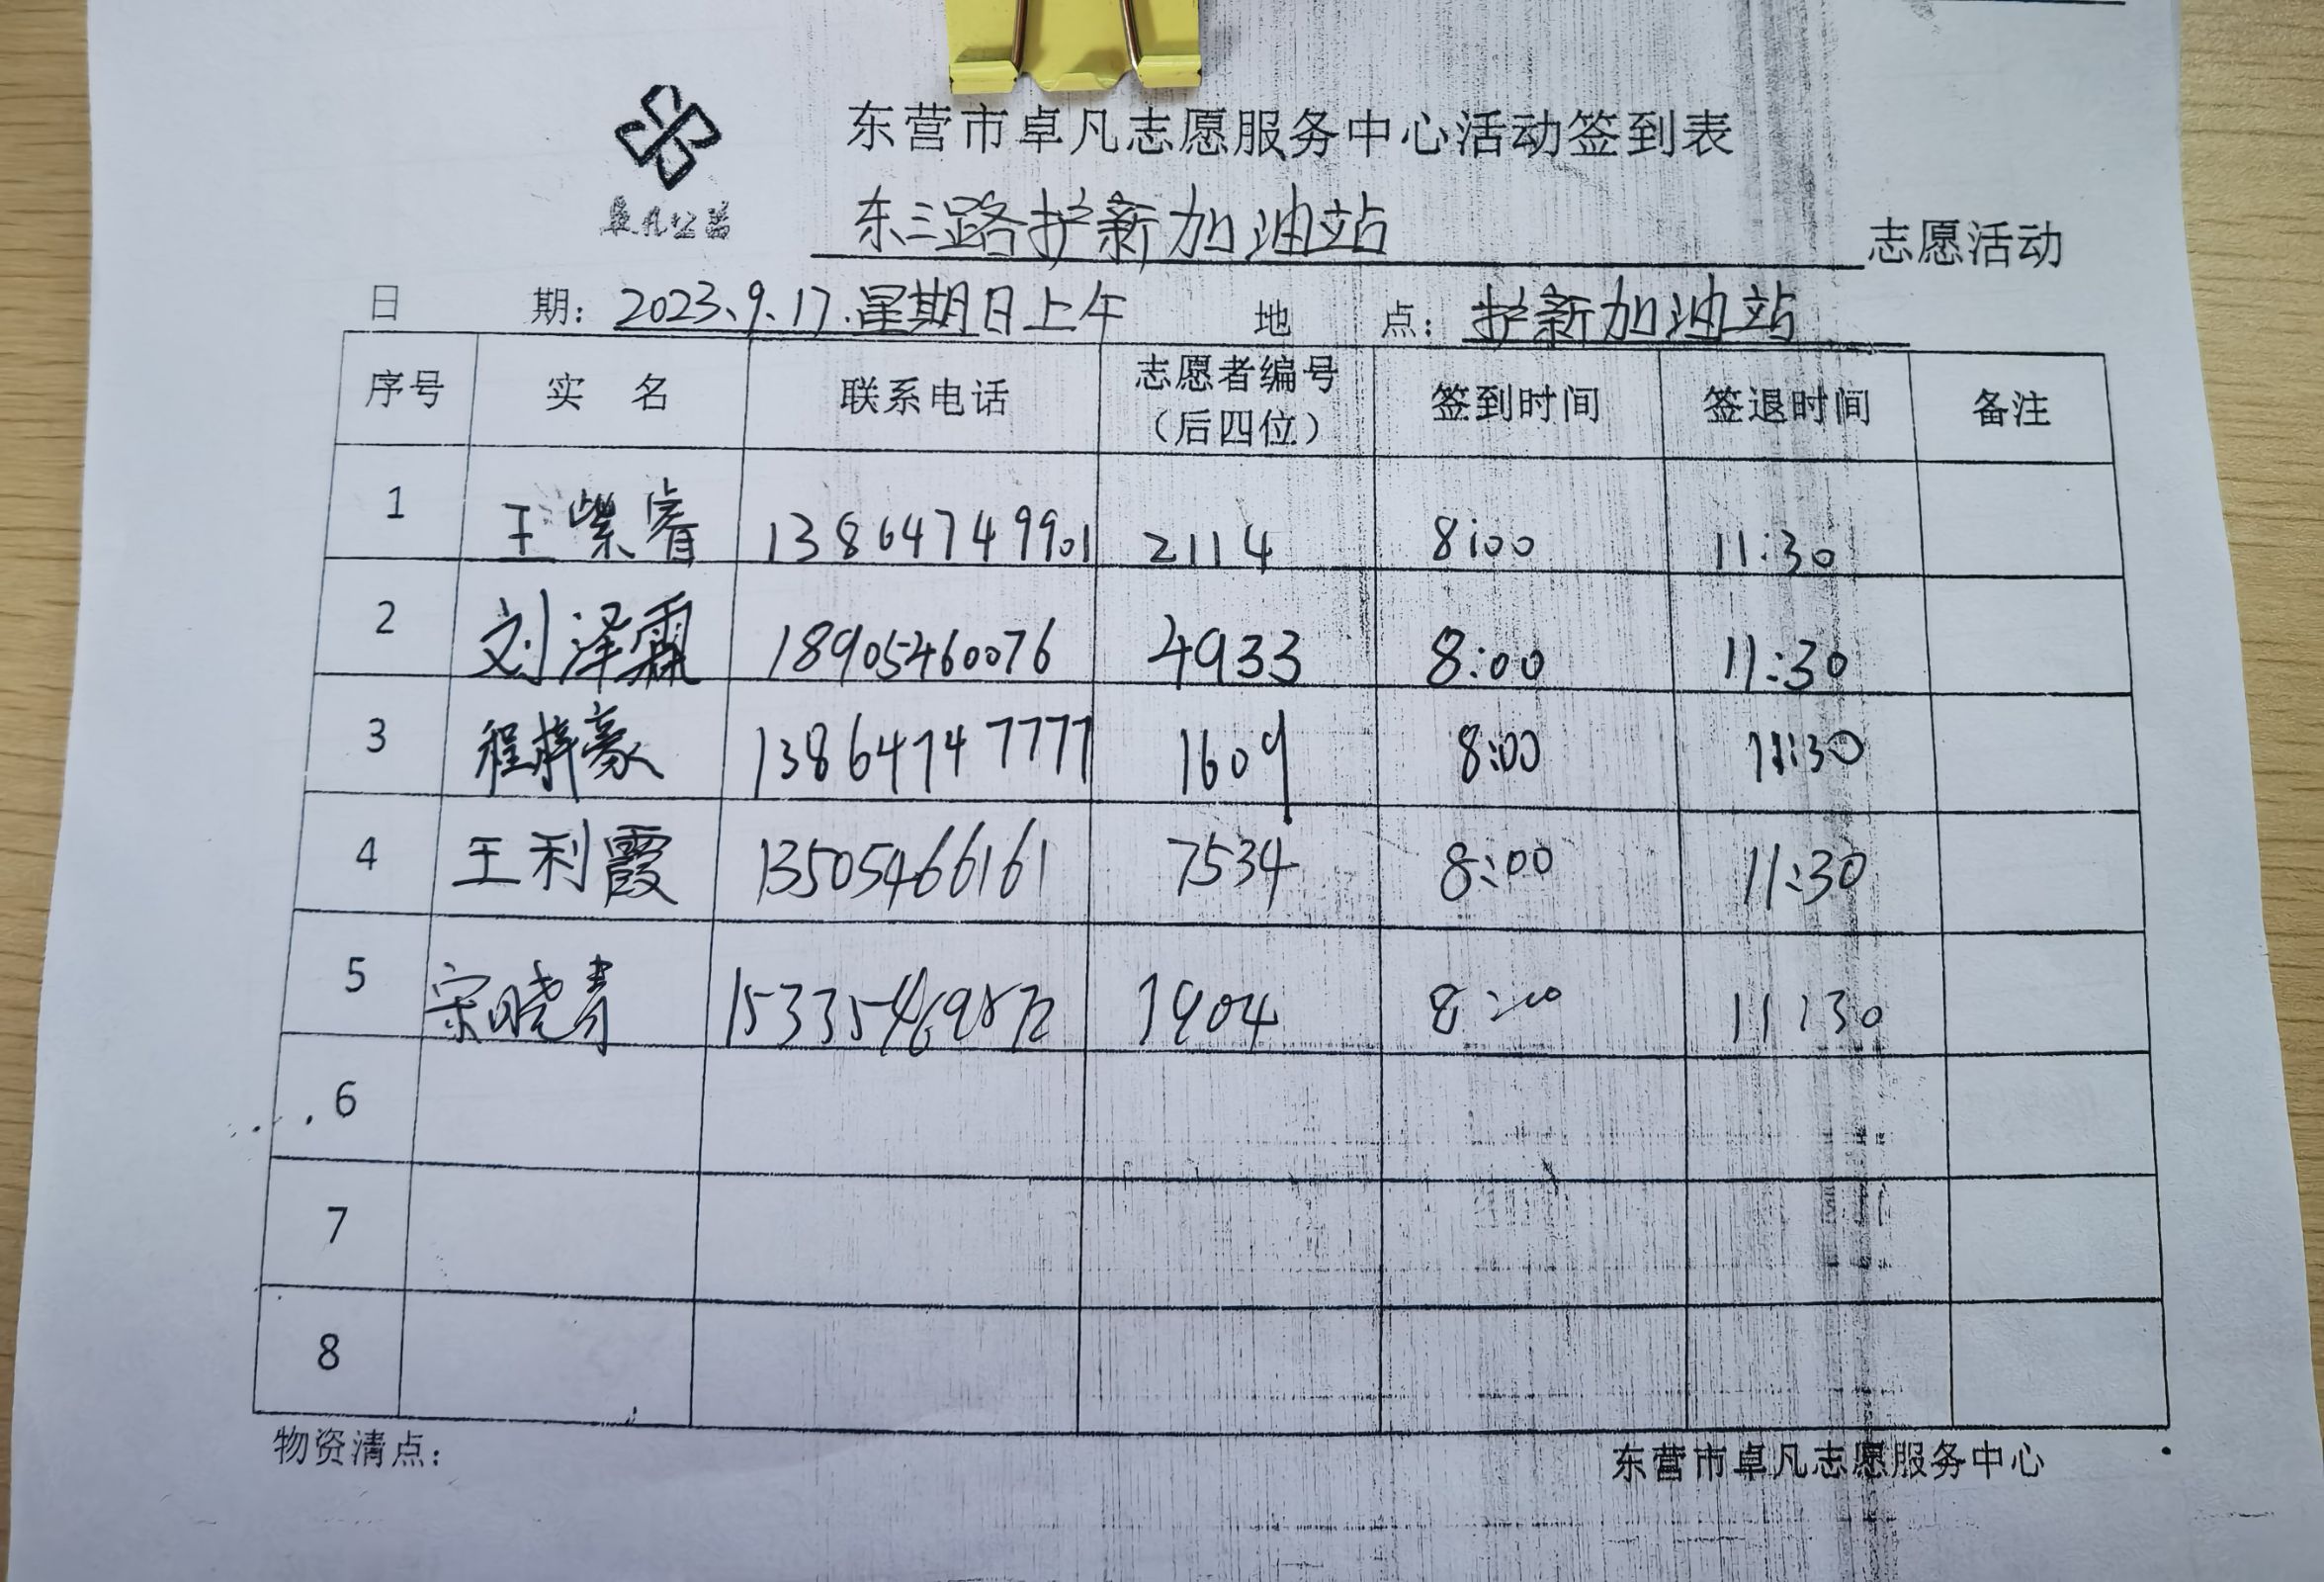 东营市卓凡志愿服务中心活动签到表
卓凡公益
东三路护新加油站 志愿活动
日 期：2023、9、17、星期日上午 地 点：护新加油站
序号 实 名 联系电话 志愿者编号（后四位） 签到时间 签退时间 备注
1 王紫睿 13864749901 2114 8:00 11:30
2 刘泽霖 18905460076 4933 8:00 11:30
3 程梓豪 13864747777 1609 8:00 11:30
4 王利霞 13505466161 7534 8:00 11:30
5 宋晓青 1904 8:00 11:30
6
7
8
物资清点： 东营市卓凡志愿服务中心